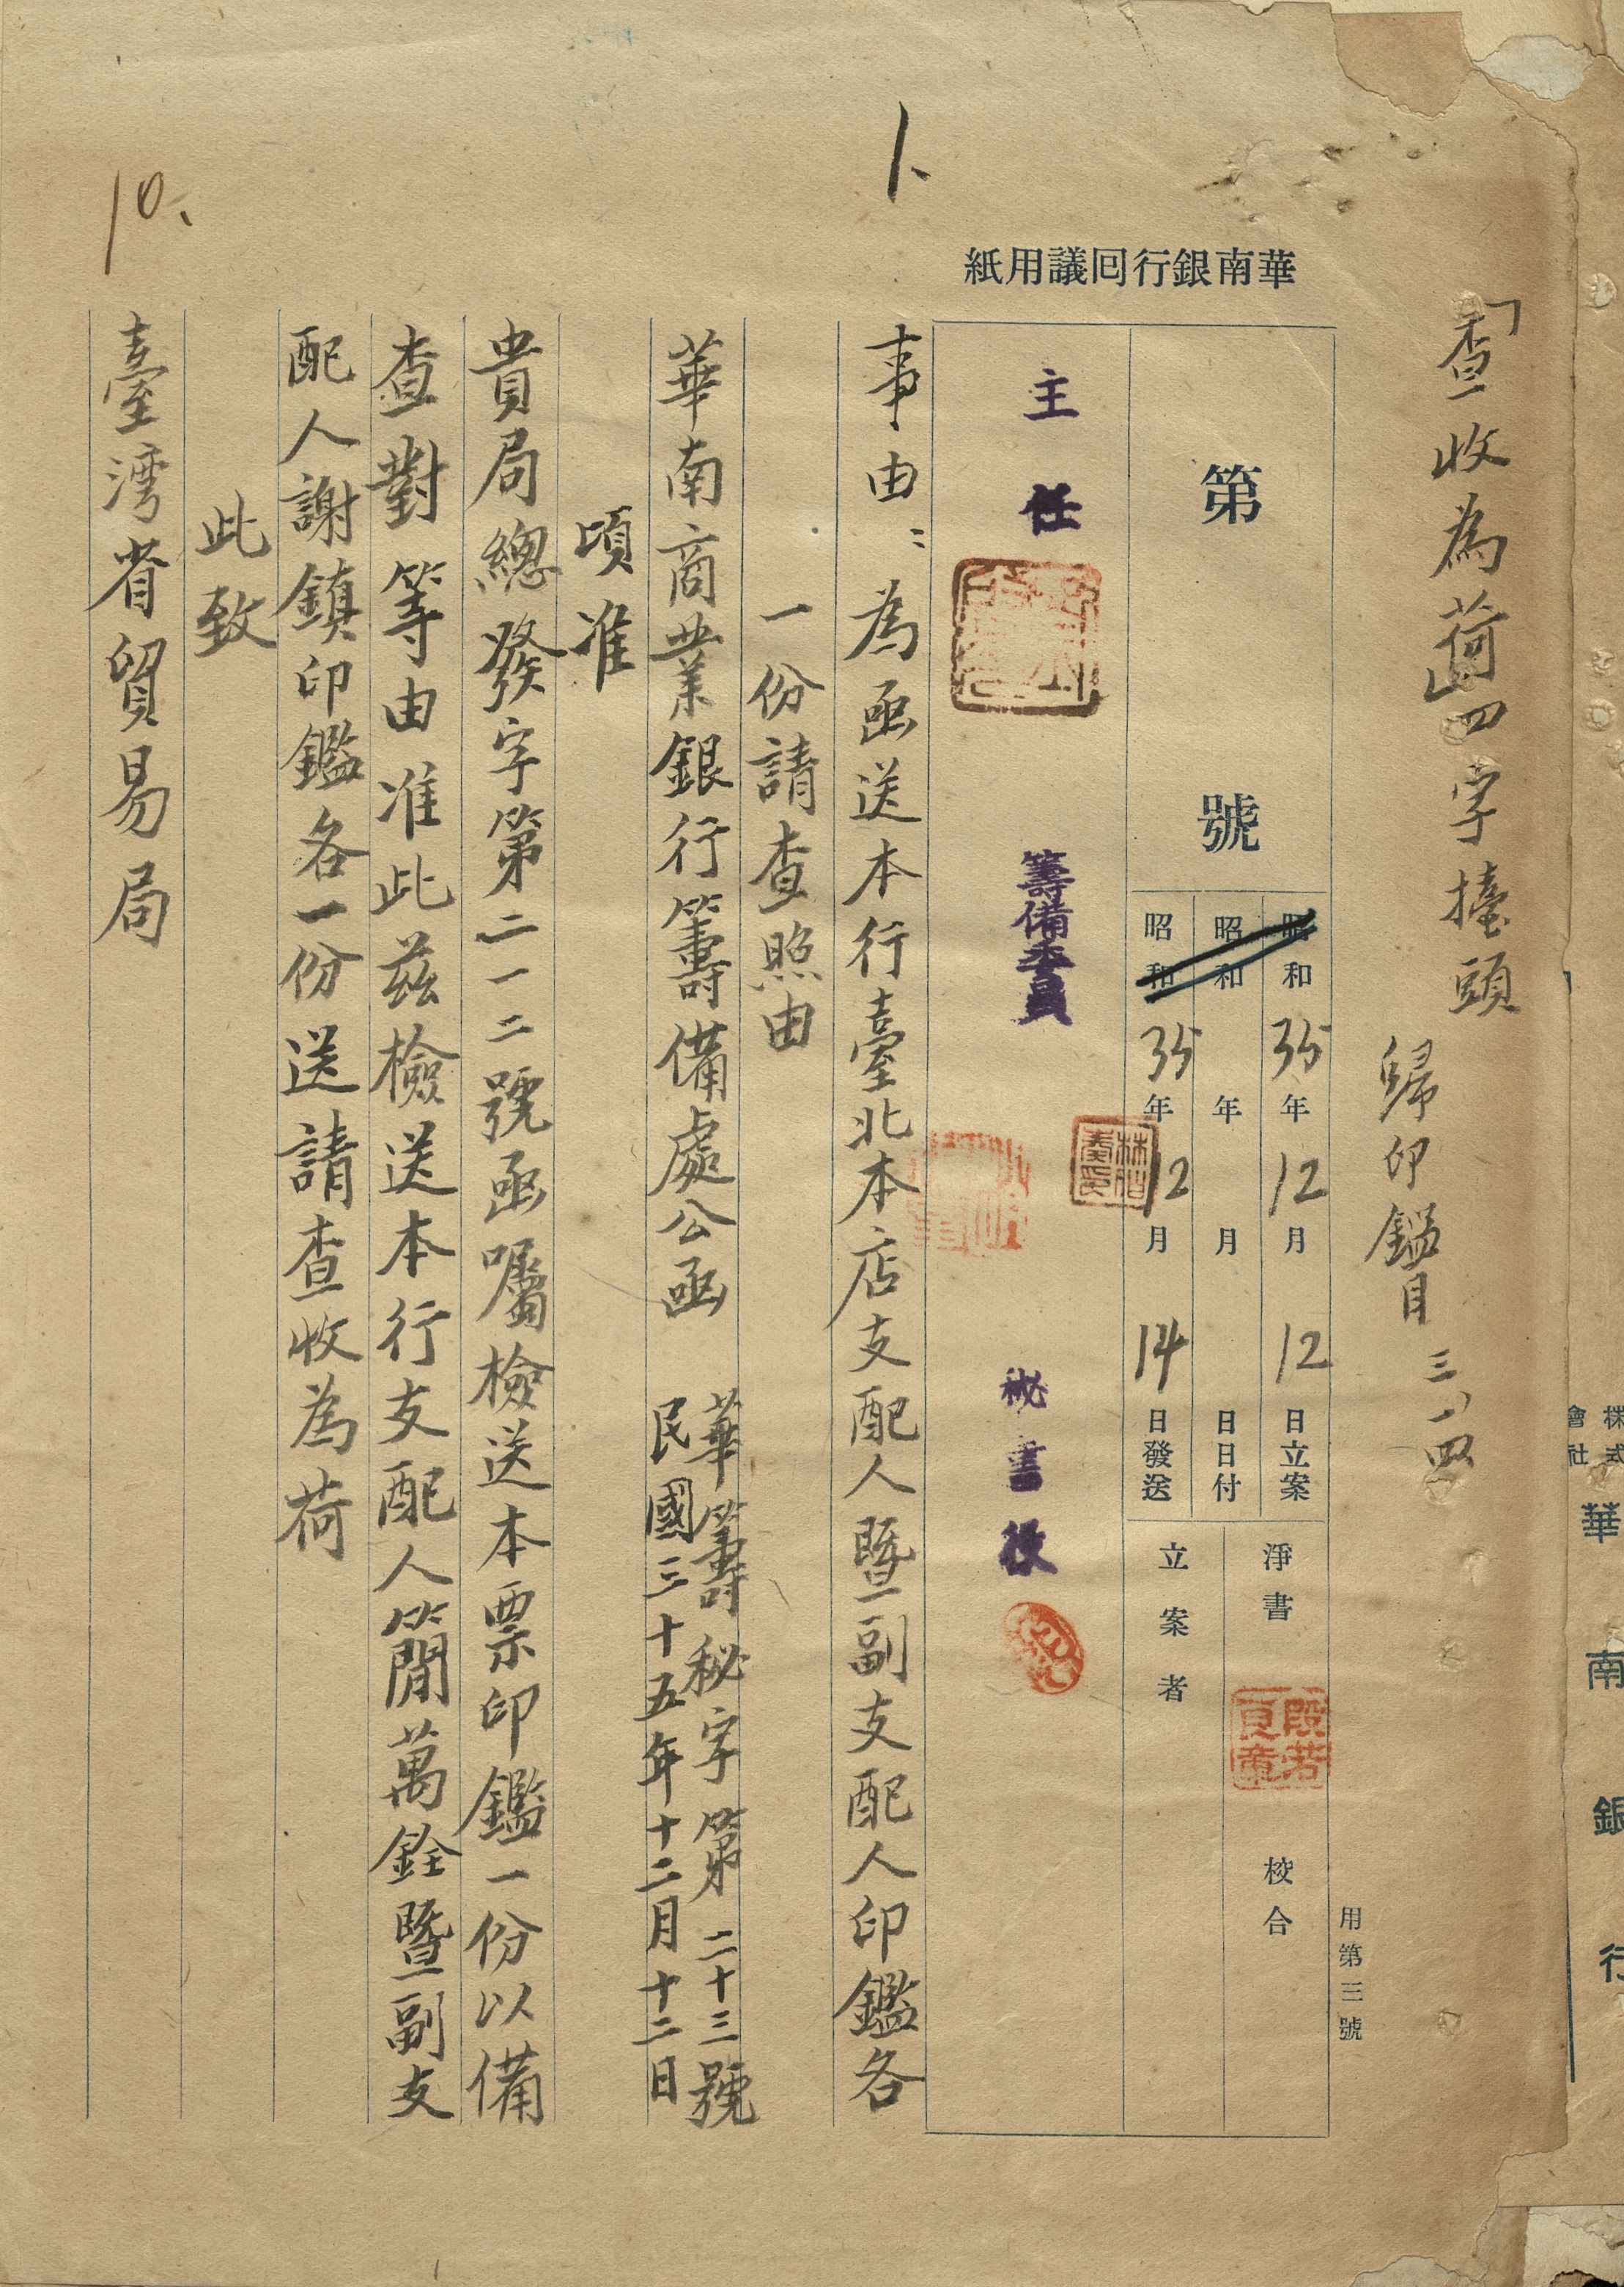 「查收為荷」四字擡頭
歸印鑑目 三、一四
華南銀行囘議用紙
用第三號
第 號
昭和35年12月12日立案
昭和 年 月 日日付
昭和35年12月14日發送
淨書 校合
立案者
段若
主任 籌備委員 秘書役
1、
事由:為函送本行臺北本店支配人暨副支配人印鑑各
一份請查照由
華南商業銀行籌備處公函
華籌秘字第二十三號
民國三十五年十二月十二日
頃准
貴局總發字第二一二號函囑檢送本票印鑑一份以備
查對等由准此茲檢送本行支配人簡萬銓暨副支
配人謝鎮印鑑各一份送請查收為荷
此致
臺灣省貿易局
10、
株式會社 華南銀行